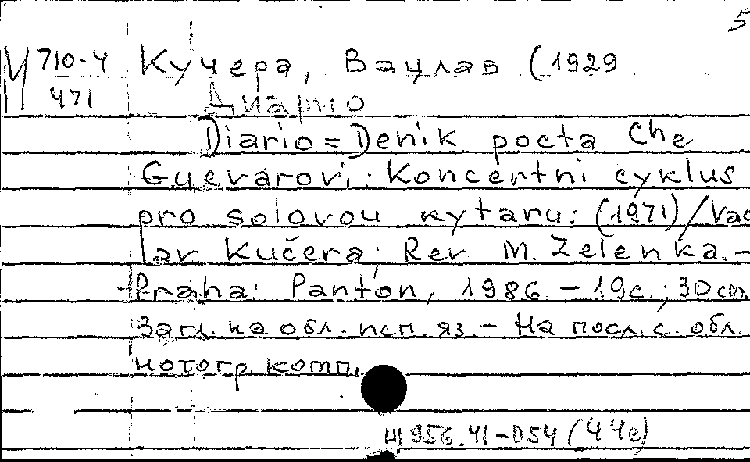 5
И 710-4 Кучера, Вацлав (1929
471 Диарио
Diario = Deník pocta Che
Guevarovi: Koncertní cyklus
pro sólovou kytaru: (1971) / Vác
lav Kučera; Rev. M. Zelenka. -
Praha: Panton, 1986. - 19с.; 30cm
Загл. на обл. исп. яз. - На посл. с. обл.
нотогр. комп.
Щ956.41-054 (4Че)